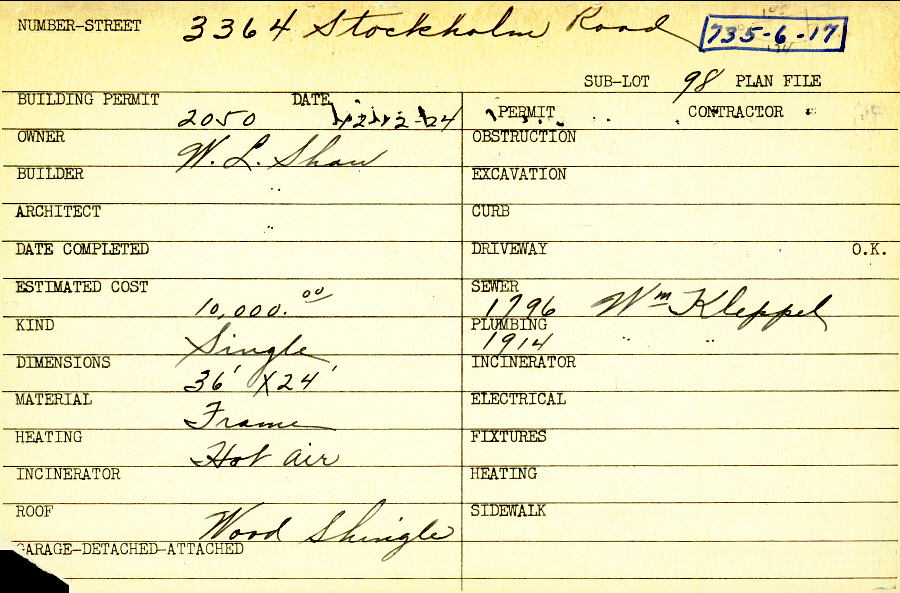 NUMBER-STREET 3364 Stockholm Road 735-6-17
SUB-LOT 98 PLAN FILE
BUILDING PERMIT 2050 DATE 12-2-24
PERMIT CONTRACTOR
OWNER W. L. Shaw
OBSTRUCTION
BUILDER "
EXCAVATION
ARCHITECT "
CURB
DATE COMPLETED
DRIVEWAY O.K.
ESTIMATED COST 10,000.00
SEWER 1796 Wm Kleppel
KIND Single
PLUMBING 1914 " "
DIMENSIONS 36' X 24'
INCINERATOR
MATERIAL Frame
ELECTRICAL
HEATING Hot air
FIXTURES
INCINERATOR
HEATING
ROOF Wood Shingle
SIDEWALK
GARAGE-DETACHED-ATTACHED